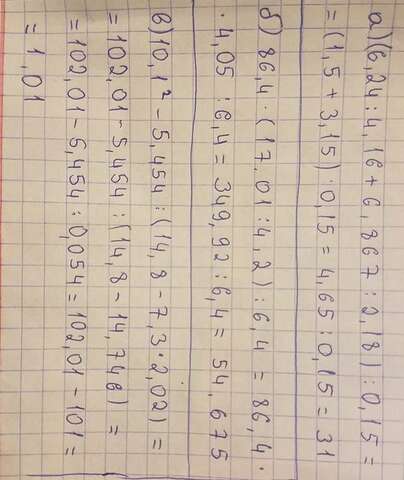 а) (6,24 : 4,16 + 6,867 : 2,18) : 0,15 =
= (1,5 + 3,15) : 0,15 = 4,65 : 0,15 = 31
б) 86,4 · (17,01 : 4,2) : 6,4 = 86,4 ·
· 4,05 : 6,4 = 349,92 : 6,4 = 54,675
в) 10,1² - 5,454 : (14,8 - 7,3 · 2,02) =
= 102,01 - 5,454 : (14,8 - 14,746) =
= 102,01 - 5,454 : 0,054 = 102,01 - 101 =
= 1,01